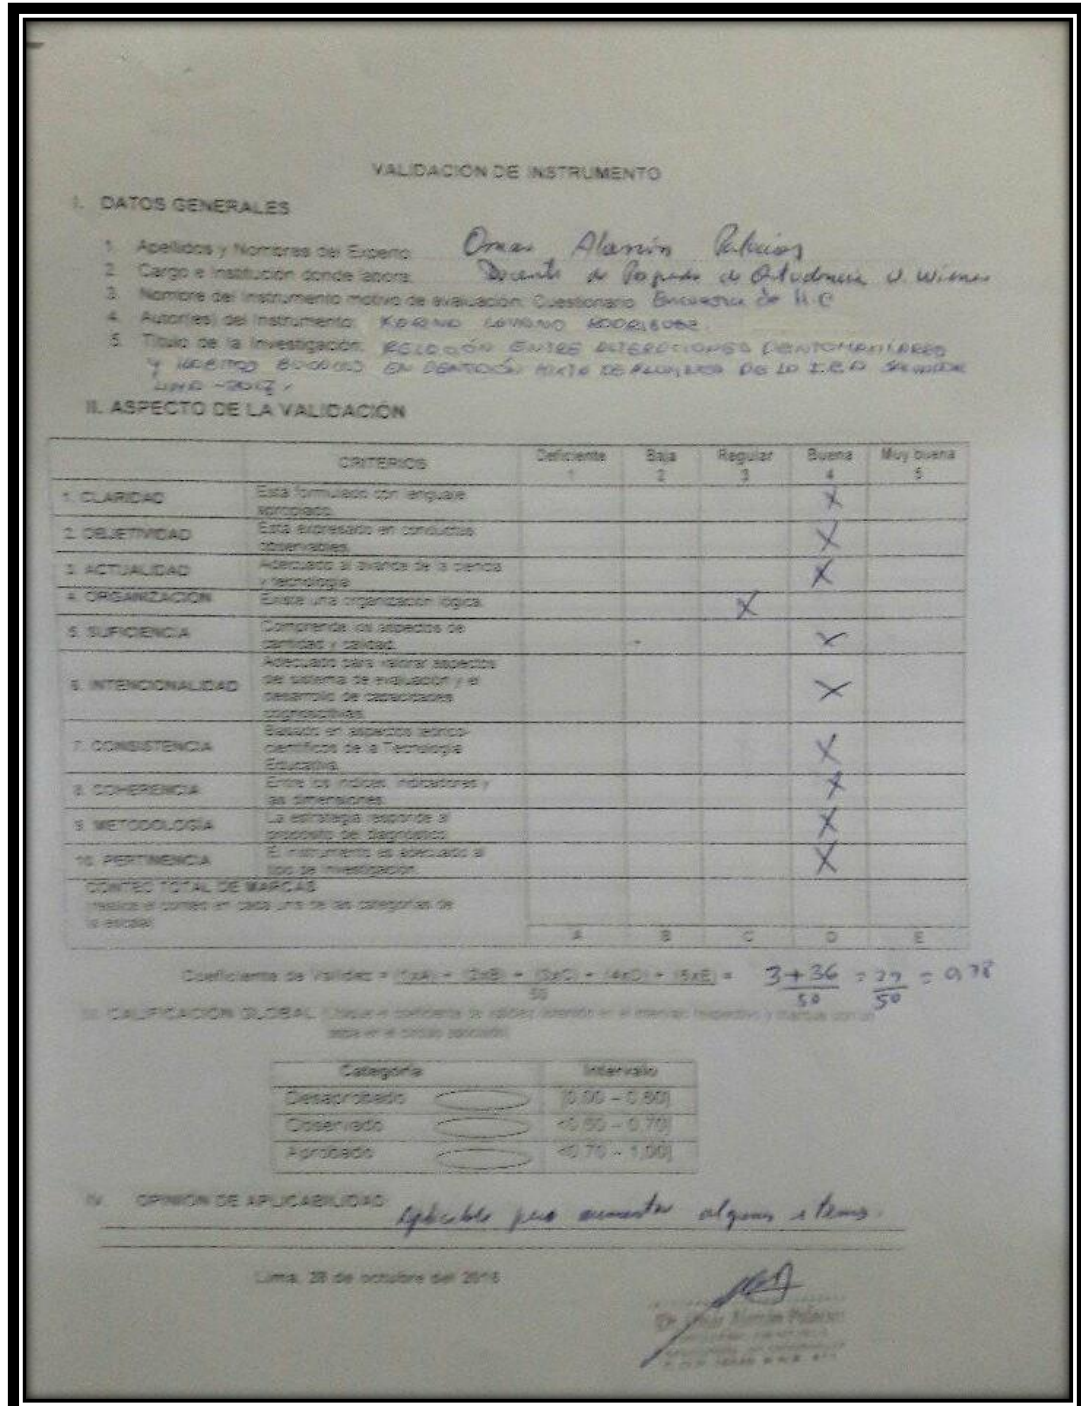 VALIDACIÓN DE INSTRUMENTO
I. DATOS GENERALES
1. Apellidos y Nombres del Experto: Omar Alarcón Palacios
2. Cargo e Institución donde labora: Docente de de U. Wiener
3. Nombre del Instrumento motivo de evaluación: Cuestionario Encuesta de H.C
4. Autor(es) del Instrumento:
5. Título de la Investigación: RELACIÓN ENTRE ALTERACIONES DENTOMAXILARES
Y HABITOS BUCALES EN DENTICIÓN MIXTA DE DE LA SALVADOR
LIMA - 2017.
II. ASPECTO DE LA VALIDACIÓN
CRITERIOS Deficiente 1 Baja 2 Regular 3 Buena 4 Muy buena 5
1. CLARIDAD Esta formulado con lenguaje apropiado. X
2. OBJETIVIDAD Esta expresado en conductas observables. X
3. ACTUALIDAD Adecuado al avance de la ciencia y tecnología. X
4. ORGANIZACIÓN Existe una organización lógica. X
5. SUFICIENCIA Comprende los aspectos de cantidad y calidad. X
6. INTENCIONALIDAD Adecuado para valorar aspectos del sistema de evaluación y el desarrollo de capacidades cognoscitivas. X
7. CONSISTENCIA Basado en aspectos teórico-científicos de la Tecnología Educativa. X
8. COHERENCIA Entre los índices, indicadores y las dimensiones. X
9. METODOLOGÍA La estrategia responde al propósito del diagnóstico. X
10. PERTINENCIA El instrumento es adecuado al tipo de investigación. X
CONTEO TOTAL DE MARCAS
(realice el conteo en cada una de las categorías de
la escala)
A B C D E
Coeficiente de Validez = (1xA) + (2xB) + (3xC) + (4xD) + (5xE) = 3+36 = 39 = 0,78
50 50 50
III. CALIFICACIÓN GLOBAL (Ubique el coeficiente de validez obtenido en el intervalo respectivo y marque con un
aspa en el círculo asociado)
Categoría Intervalo
Desaprobado [0,00 – 0,60]
Observado <0,60 – 0,70]
Aprobado <0,70 – 1,00]
IV. OPINIÓN DE APLICABILIDAD:
Aplicable pero aumentar algunos items.
Lima, 28 de octubre del 2016
Omar Alarcón Palacios